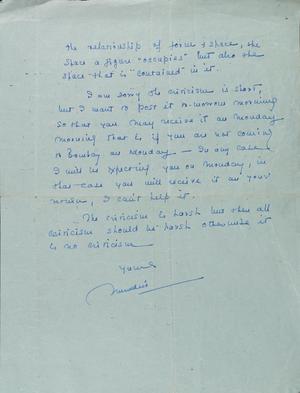 the relationship of form & space, the
space a figure "occupies" but also the
space that is "contained" in it.
I am sorry the criticism is short,
but I want to post it to-morrow morning
so that you may receive it on Monday
morning that is if you are not coming
to Bombay on Monday — In any case
I will be expecting you on Monday, in
that case you will receive it on your
return, I can't help it.
The criticism is harsh but then all
criticism should be harsh otherwise it
is no criticism
Yours